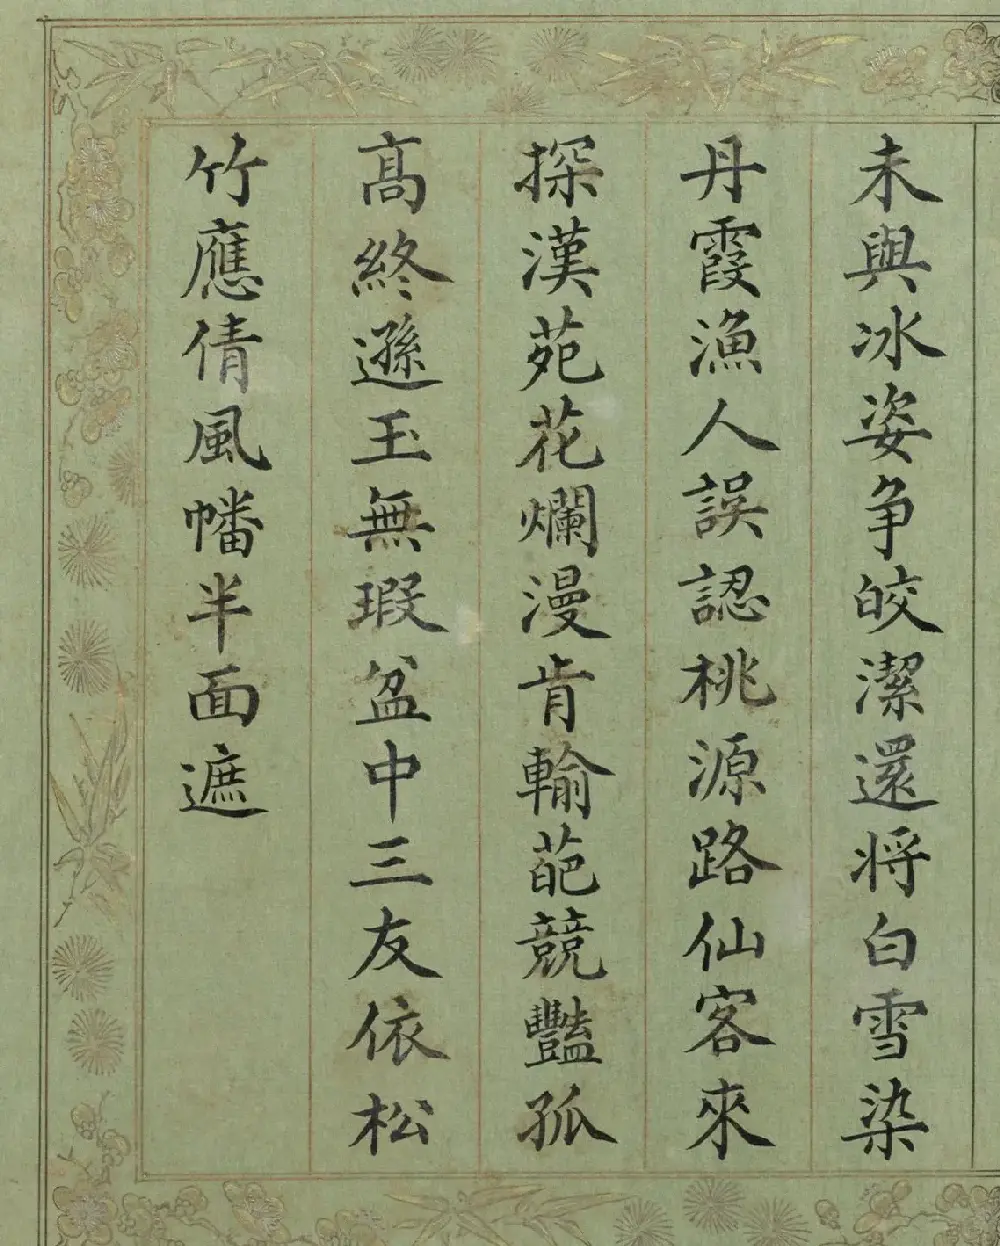 未與冰姿争皎潔還将白雪染
丹霞漁人誤認桃源路仙客來
探漢苑花爛漫肯輸葩競豔孤
髙終遜玉無瑕盆中三友依松
竹應倩風幡半面遮